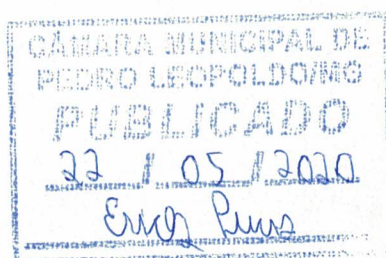 CÂMARA MUNICIPAL DE
PEDRO LEOPOLDO/MG
PUBLICADO
22 / 05 / 2020